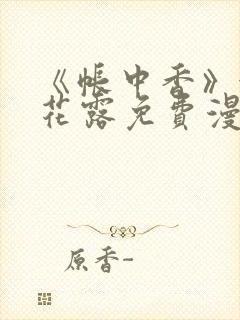 《帐中香》
花露免费漫
原香-